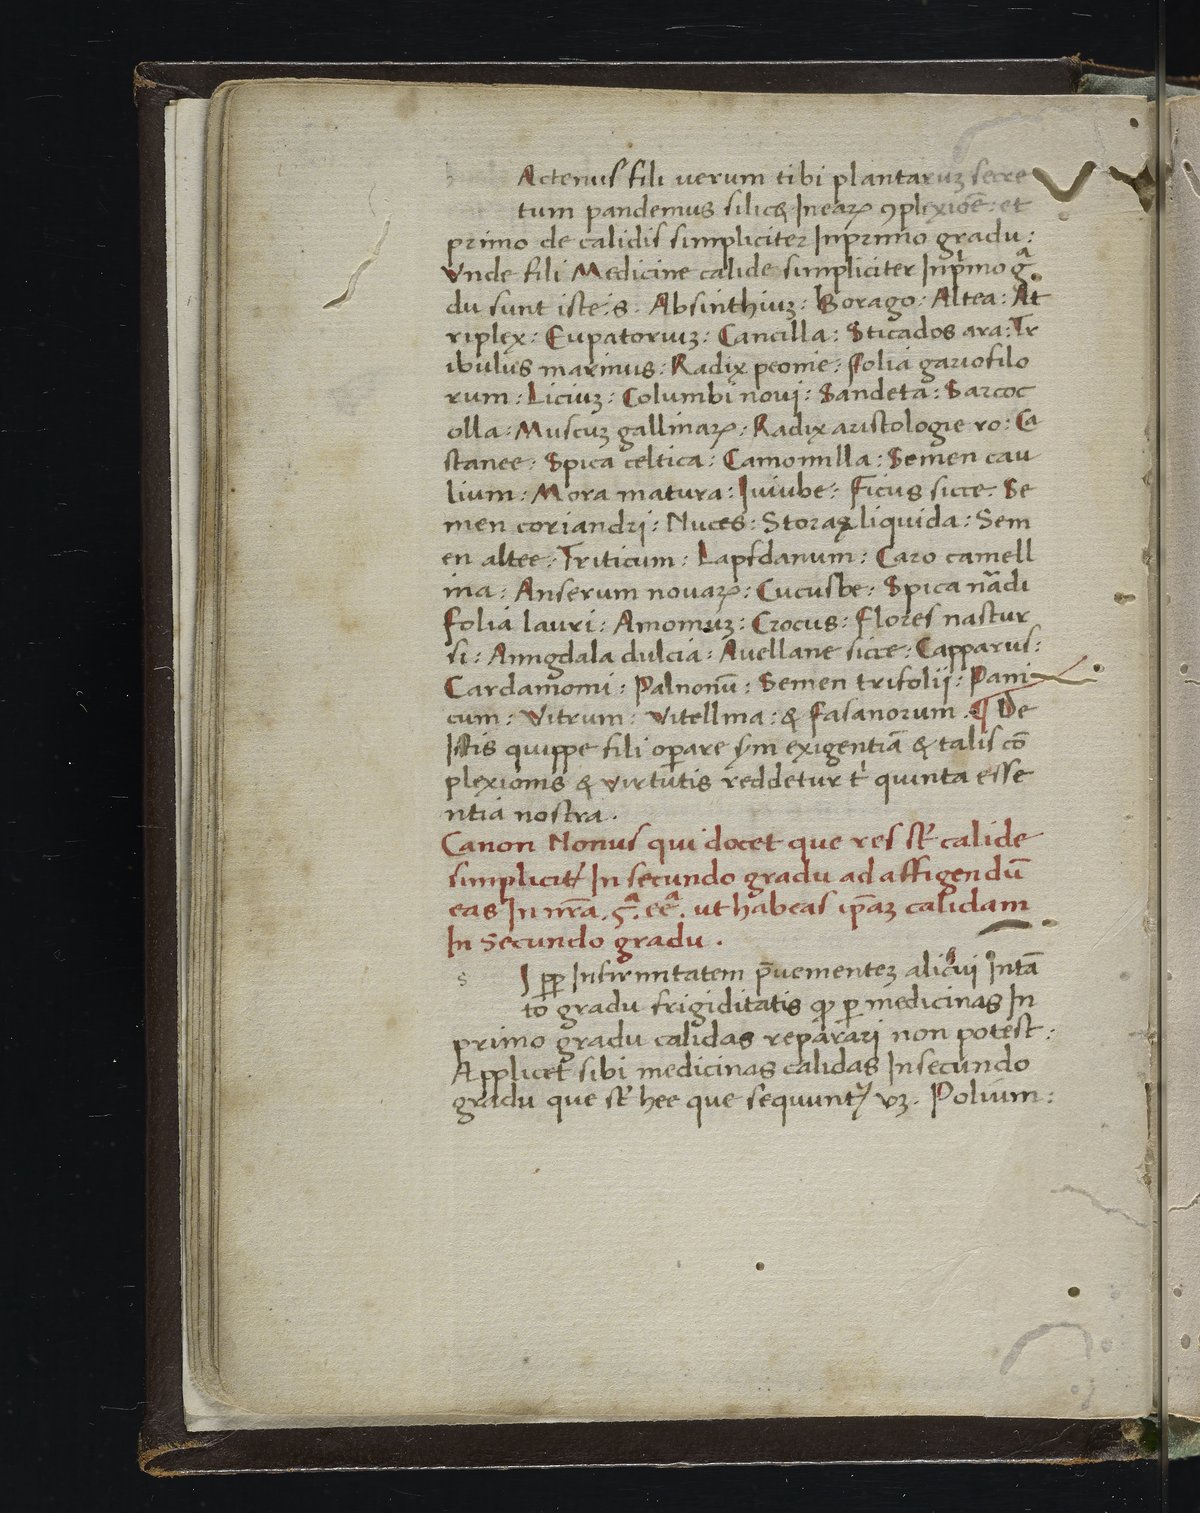 Actenus fili uerum tibi plantaruʒ secre
tum pandemus silicꝫ Inearꝝ ꝯplexiōe: et
primo de calidis simpliciter Inprimo gradu:
Vnde fili Medicine calide simpliciter Inp̍mo gᷓ
du sunt iste: s. Absinthiuʒ: Borago: Altea: At
riplex: Eupatoriuʒ: Cancilla: Sticados ara: Tr
ibulus marinus: Radix peonie: Folia gariofilo
rum: Liciuʒ: Columbi noui: Sandeta: Sarcoc
olla: Muscuʒ gallinarꝝ: Radix aristologie ro: Ca
stanee: Spica celtica: Camomilla: Semen cau
lium: Mora matura: Iuiube: Ficus sicce: Se
men coriandri: Nuces: Storax liquida: Sem
en altee: Triticum: Lapsdanum: Caro camell
ina: Anserum nouarꝝ: Cucusbe: Spica nādi
folia lauri: Amomuʒ: Crocus: Flores nastur
si: Amigdala dulcia: Auellane sicce: Capparus:
Cardamomi: Palnonū: Semen trifolij: Pani
cum: Vitrum: Vitellina: & fasanorum. ¶ De
Istis quippe fili operare sᷤm exigentiā & talis cō
plexionis & virtutis reddetur t̍ quinta esse
ntia nostra.
Canon Nonus qui docet que res st̄ calide
simplicit᷑ In secundo gradu ad affigendū
eas In nr̄a .5ᷓ. eēᷓ. ut habeas ip̄aʒ calidam
In Secundo gradu.
s I ꝓp Infirmitatem p̄uementeʒ alicui Intā
to gradu frigiditatis qꝫ ꝑ medicinas In
primo gradu calidas reparari non potest:
Applicet sibi medicinas calidas Insecundo
gradu que st̄ hee que sequunt᷑ vʒ. Polium: